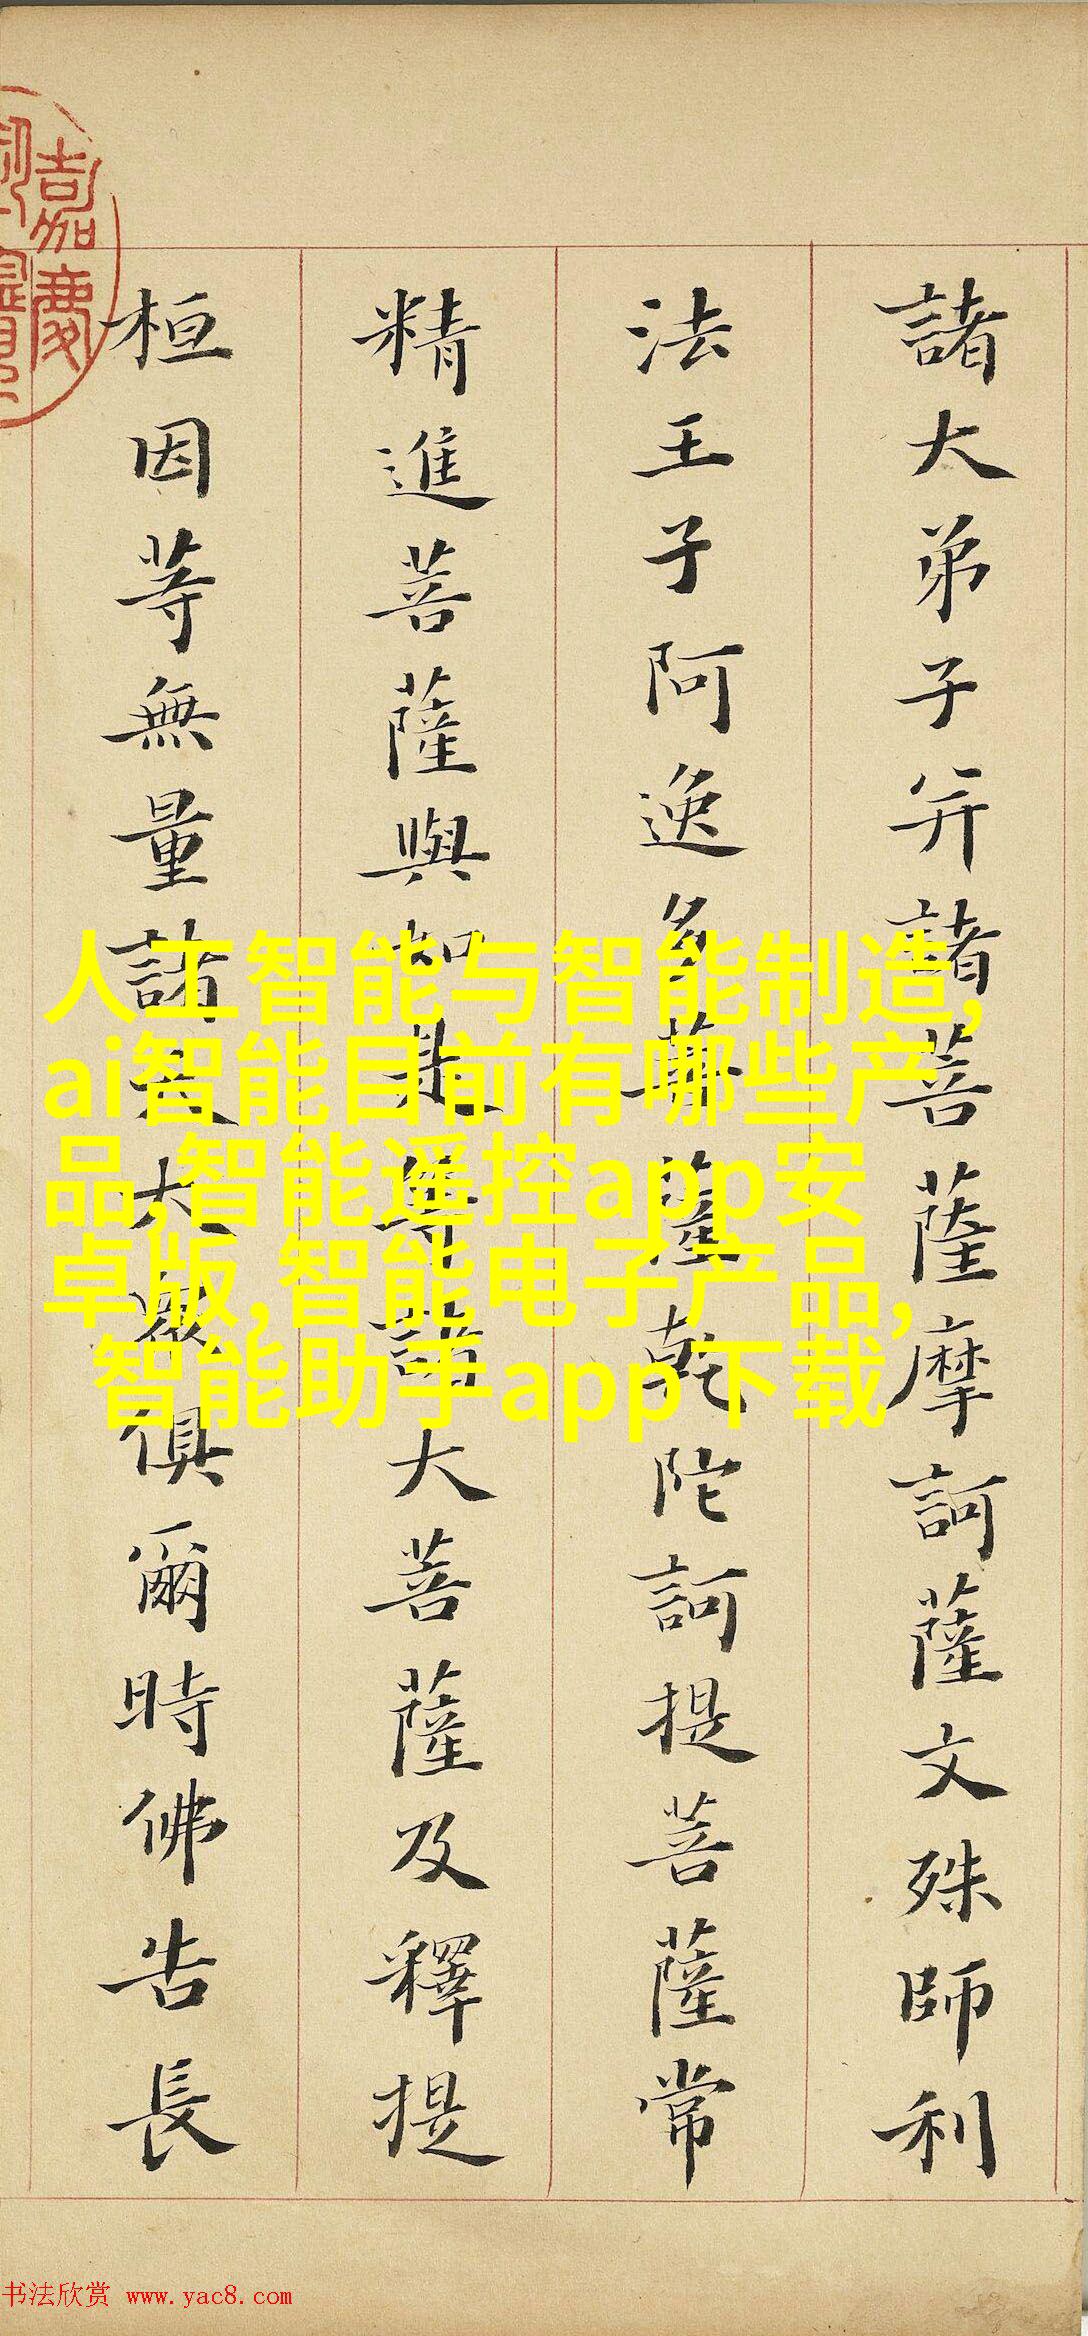 諸大弟子并諸菩薩摩訶薩文殊師利
法王子阿逸多菩薩乾陀訶提菩薩常
精進菩薩與如是等諸大菩薩及釋提
桓因等無量諸天大衆俱爾時佛告長
嘉慶
人工智能与智能制造,
ai智能目前有哪些产
品,智能遥控app安
卓版,智能电子产品,
智能助手app下载
书法欣赏 www.yac8.com